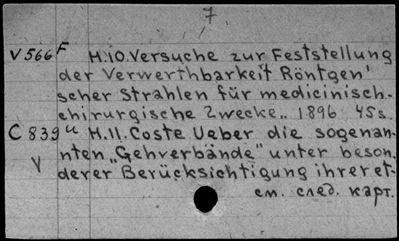 7
V 566 F H.10. Versuche zur Feststellung
der Verwerthbarkeit Röntgen'
scher Strahlen für medicinisch-
chirurgische Zwecke„ 1896 45s.
C 839 u H.11. Coste Ueber die sogenan-
V nten „Gehverbände" unter beson.
derer Berücksichtigung ihrer et-
см. след. карт.